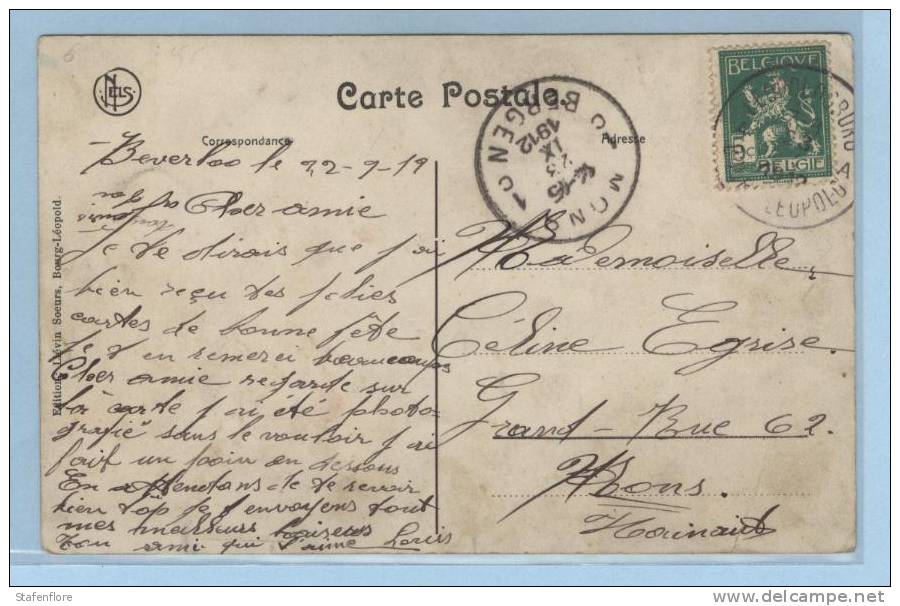 NELS
Carte Postale.
Correspondance
Adresse
Edition, Liévin Soeurs, Bourg-Léopold.
BELGIQUE
5c
BELGIË
MONS
BERGEN
1912
IX
23
14-15
1C
C1
LEOPOLD
Beverloo le 22-9-19
Cher amie
Je te dirais que j ai
bien reçu tes jolies
cartes de bonne fête
je t en remerci beaucoups
Cher amie regarde sur
la carte j ai été photo-
grafié sans le vouloir j ai
fait un poin en dessous
En attendans de te revoir
bien tôp je t envoyens tout
mes meilleurs baiseurs
Ton ami qui t'aime Louis
Mademoiselle
Céline Egrise.
Grand-Rue 62.
Mons.
Hainaut
Stafenflore
www.delcampe.net